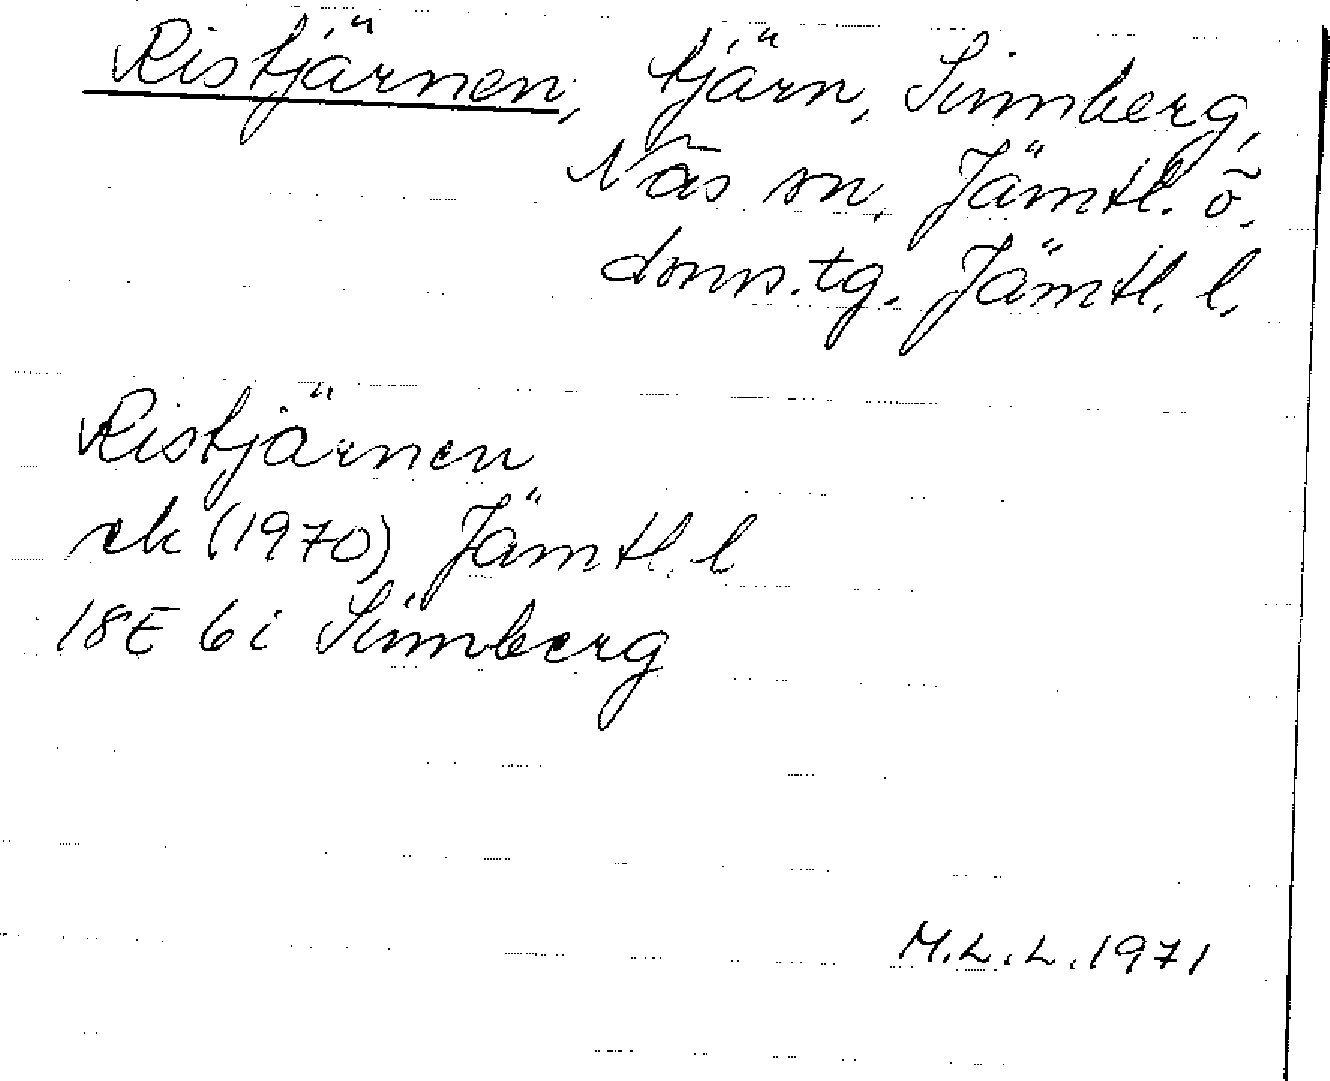 Ristjärnen, tjärn, Sinnberg,
Näs sn. Jämtl. ö.
doms.tg. Jämtl. l.
Ristjärnen
rk (1970) Jämtl. l
18E 6i Sinnberg
M.L.L. 1971